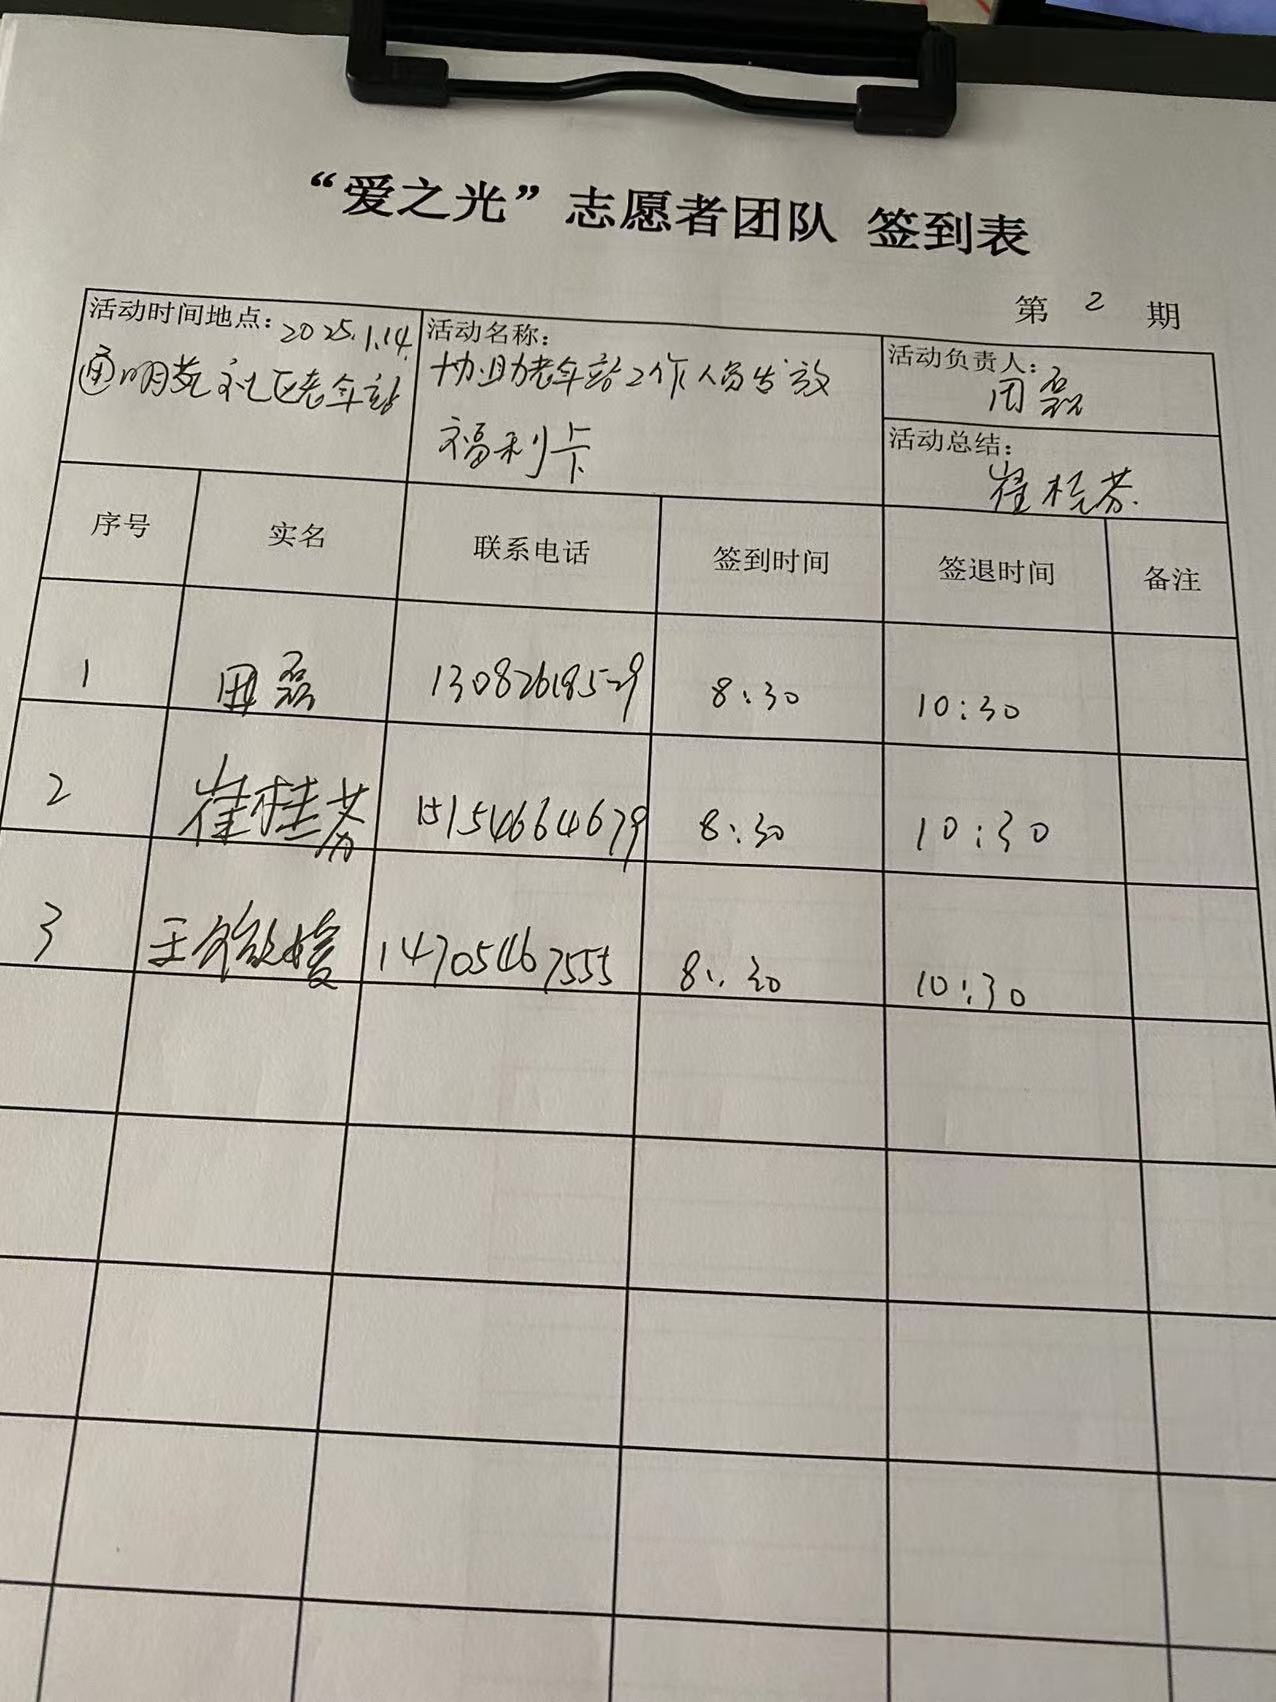 “爱之光”志愿者团队 签到表
第 2 期
活动时间地点：2025.1.14.
明苑社区老年站
活动名称：
协助老年站工作人员发放
福利卡
活动负责人：
田磊
活动总结：
崔桂芬.
序号 实名 联系电话 签到时间 签退时间 备注
1 田磊 8:30 10:30
2 崔桂芬 15154664679 8:30 10:30
3 王 14705467555 8:30 10:30